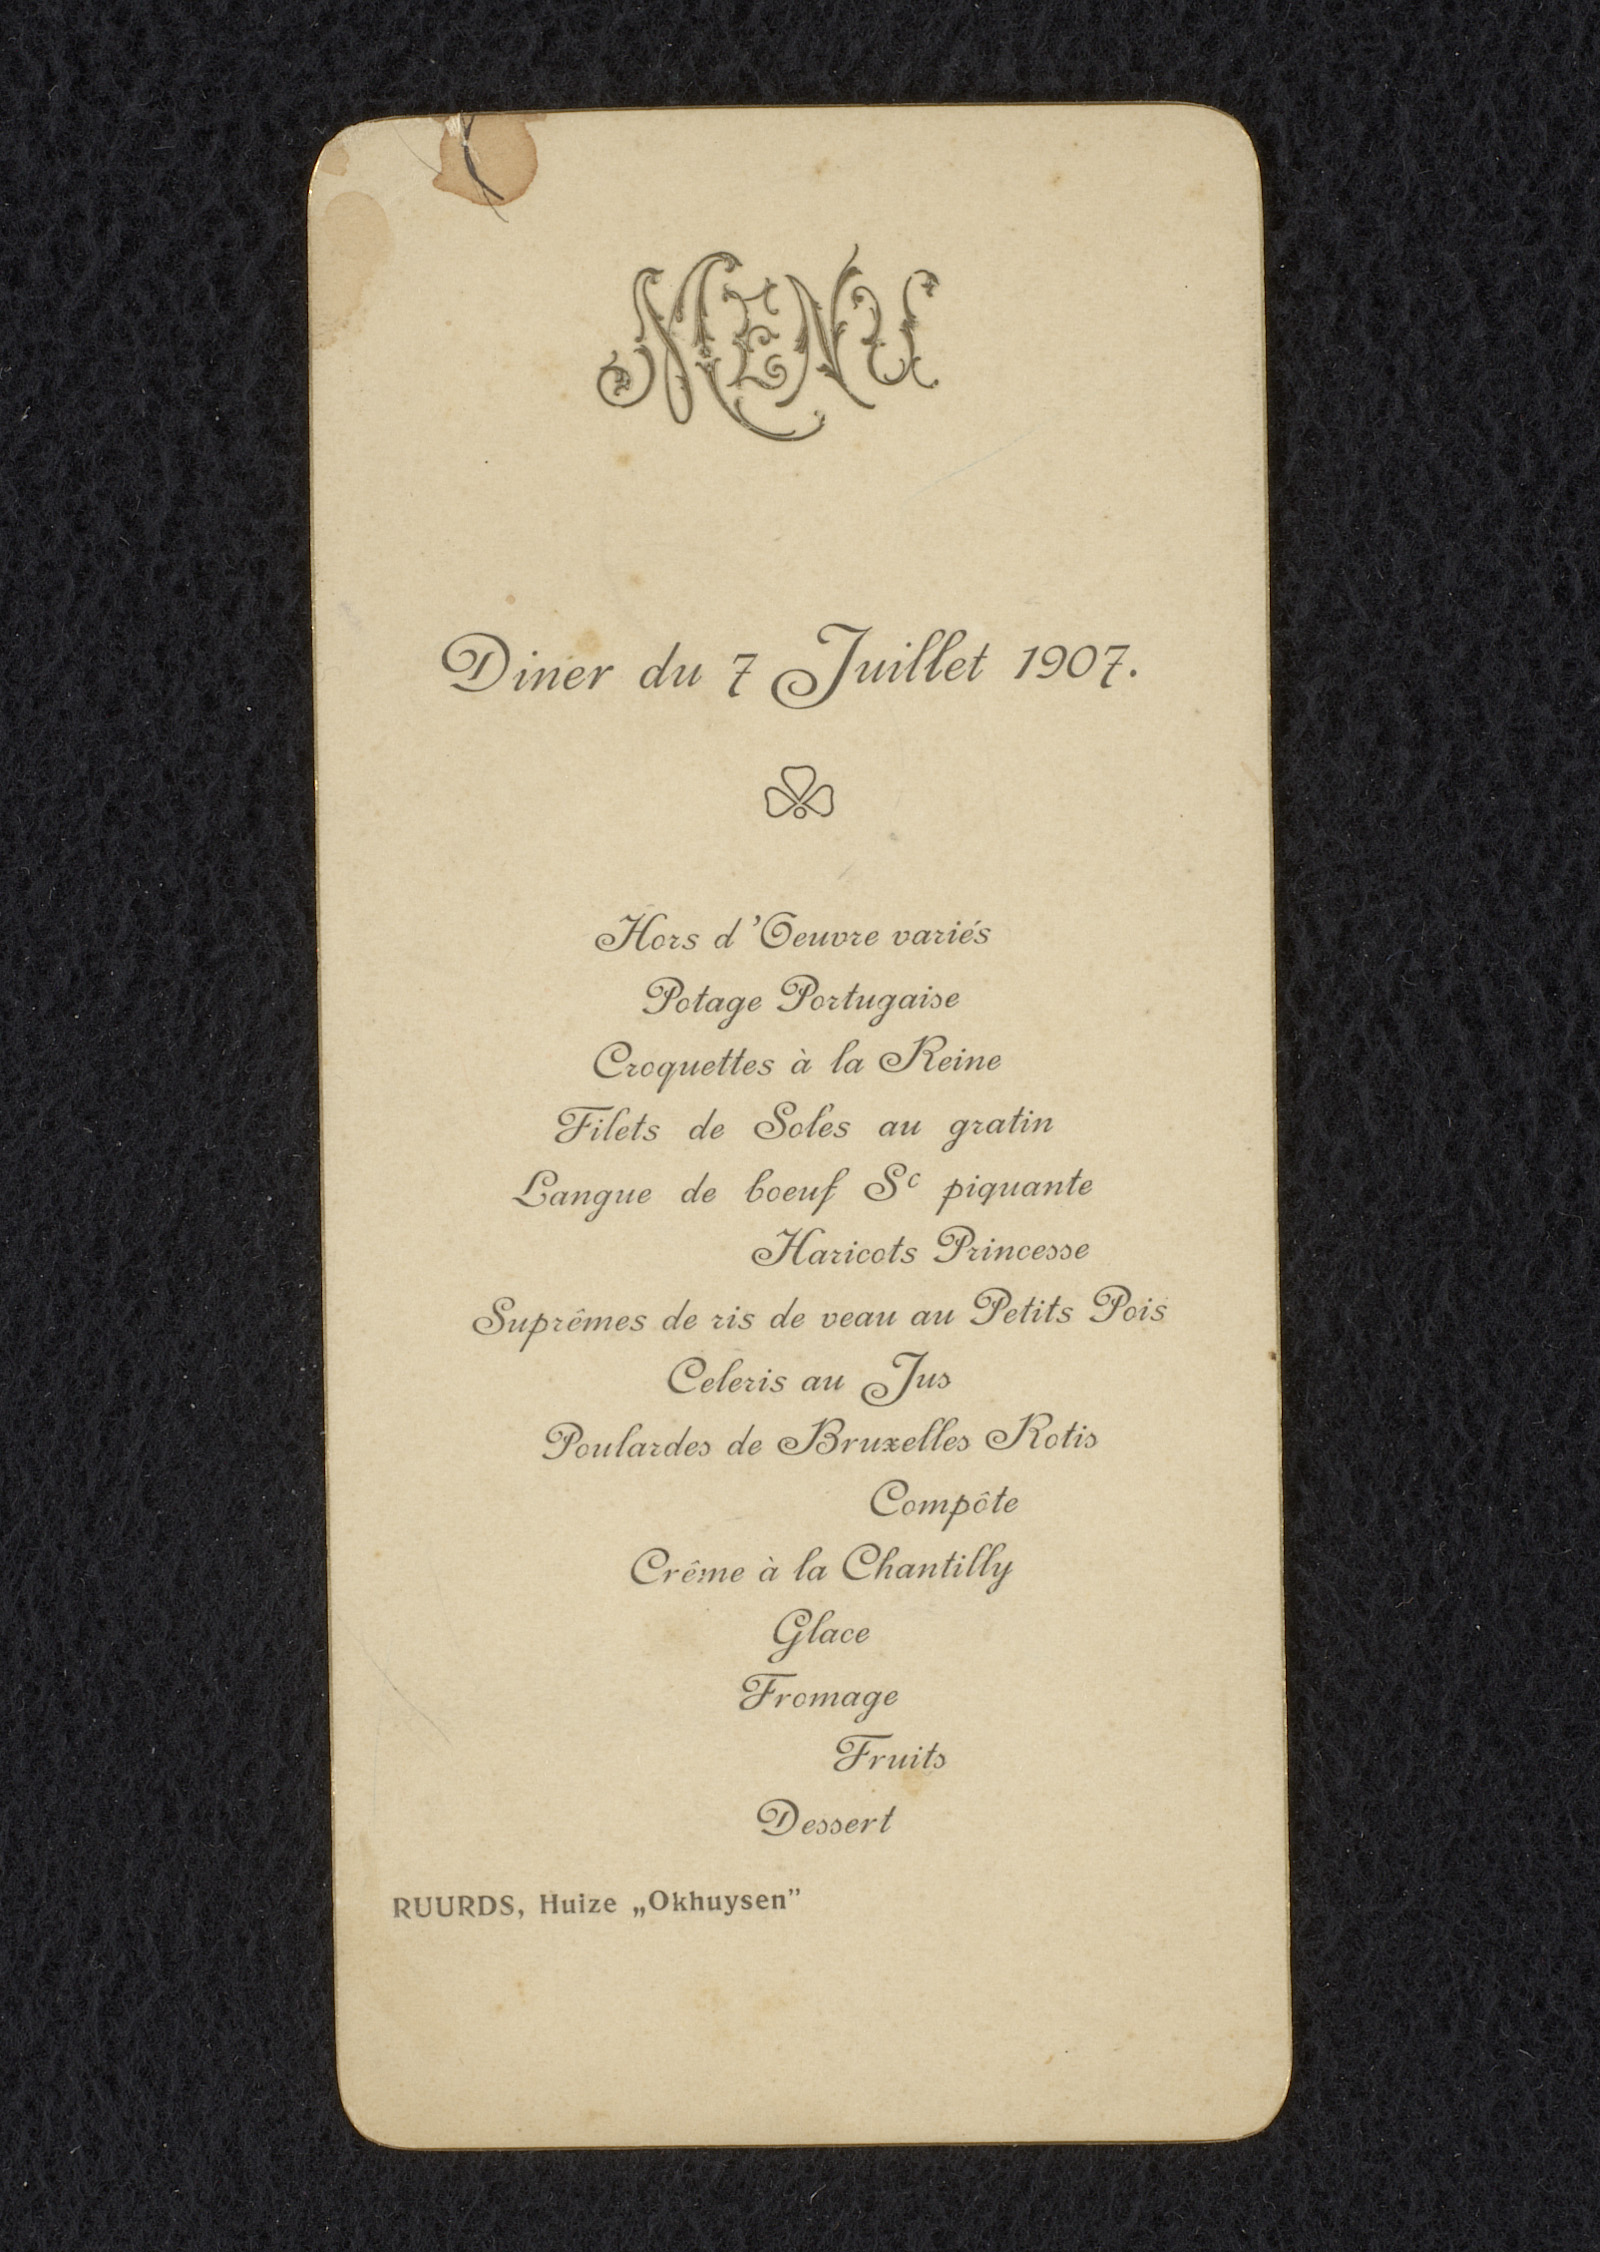 MENU
Diner du 7 Juillet 1907.
Hors d'Oeuvre variés
Potage Portugaise
Croquettes à la Reine
Filets de Soles au gratin
Langue de boeuf Sc piquante
Haricots Princesse
Suprêmes de ris de veau au Petits Pois
Celeris au Jus
Poulardes de Bruxelles Rotis
Compôte
Crême à la Chantilly
Glace
Fromage
Fruits
Dessert
RUURDS, Huize „Okhuysen”